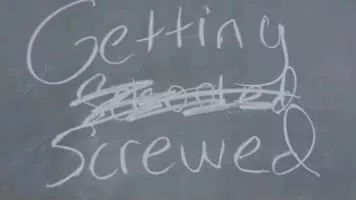 Getting
Screwed